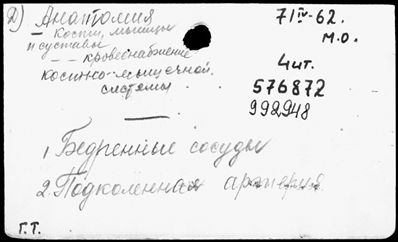 2) Анатомия
– Кости, мышцы
и суставы
– – кровоснабжение
костно-мышечной
системы
71 IV-62.
М.О.
4 чит.
576872
992948
1. Бедренные сосуды
2. Подколенная артерия.
Г.Т.